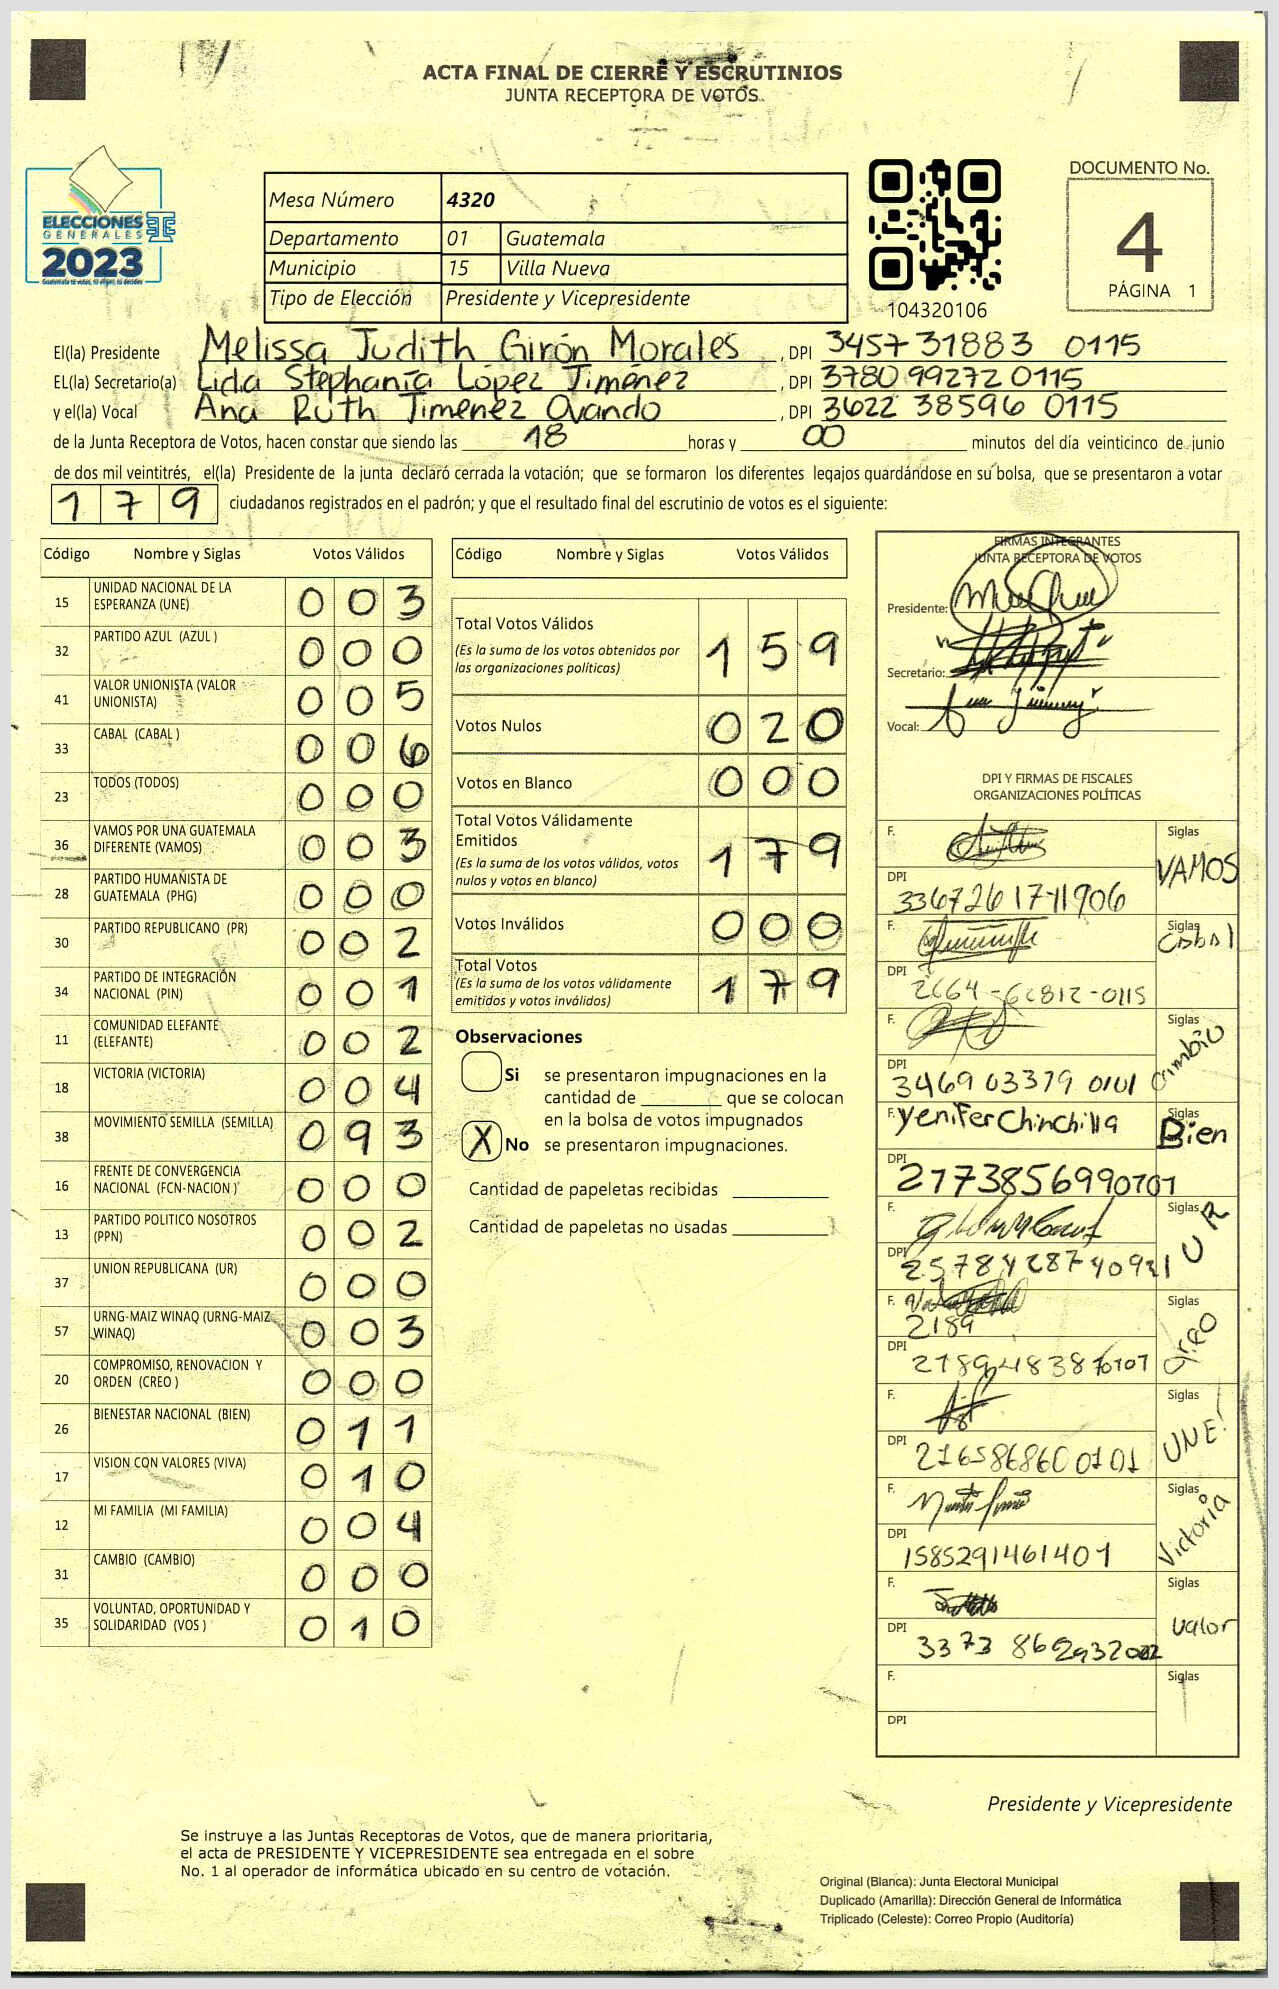 ACTA FINAL DE CIERRE Y ESCRUTINIOS
JUNTA RECEPTORA DE VOTOS
ELECCIONES
GENERALES
2023
Guatemala tú votas, tú eliges, tú decides
Mesa Número 4320
Departamento 01 Guatemala
Municipio 15 Villa Nueva
Tipo de Elección Presidente y Vicepresidente
104320106
DOCUMENTO No.
4
PÁGINA 1
El(la) Presidente Melissa Judith Girón Morales , DPI 3457 31883 0115
EL(la) Secretario(a) Lida Stephanía López Jiménez , DPI 3780 99272 0115
y el(la) Vocal Ana Ruth Jimenez Ovando , DPI 3622 38596 0115
de la Junta Receptora de Votos, hacen constar que siendo las 18 horas y 00 minutos del día veinticinco de junio
de dos mil veintitrés, el(la) Presidente de la junta declaró cerrada la votación; que se formaron los diferentes legajos guardándose en su bolsa, que se presentaron a votar
179 ciudadanos registrados en el padrón; y que el resultado final del escrutinio de votos es el siguiente:
Código Nombre y Siglas Votos Válidos
15 UNIDAD NACIONAL DE LA ESPERANZA (UNE) 003
32 PARTIDO AZUL (AZUL ) 000
41 VALOR UNIONISTA (VALOR UNIONISTA) 005
33 CABAL (CABAL ) 006
23 TODOS (TODOS) 000
36 VAMOS POR UNA GUATEMALA DIFERENTE (VAMOS) 003
28 PARTIDO HUMANISTA DE GUATEMALA (PHG) 000
30 PARTIDO REPUBLICANO (PR) 002
34 PARTIDO DE INTEGRACIÓN NACIONAL (PIN) 001
11 COMUNIDAD ELEFANTE (ELEFANTE) 002
18 VICTORIA (VICTORIA) 004
38 MOVIMIENTO SEMILLA (SEMILLA) 093
16 FRENTE DE CONVERGENCIA NACIONAL (FCN-NACION ) 000
13 PARTIDO POLITICO NOSOTROS (PPN) 002
37 UNION REPUBLICANA (UR) 000
57 URNG-MAIZ WINAQ (URNG-MAIZ WINAQ) 003
20 COMPROMISO, RENOVACION Y ORDEN (CREO ) 000
26 BIENESTAR NACIONAL (BIEN) 011
17 VISION CON VALORES (VIVA) 010
12 MI FAMILIA (MI FAMILIA) 004
31 CAMBIO (CAMBIO) 000
35 VOLUNTAD, OPORTUNIDAD Y SOLIDARIDAD (VOS ) 010
Código Nombre y Siglas Votos Válidos
Total Votos Válidos 159
(Es la suma de los votos obtenidos por
las organizaciones políticas)
Votos Nulos 020
Votos en Blanco 000
Total Votos Válidamente
Emitidos 179
(Es la suma de los votos válidos, votos
nulos y votos en blanco)
Votos Inválidos 000
Total Votos 179
(Es la suma de los votos válidamente
emitidos y votos inválidos)
Observaciones
Si se presentaron impugnaciones en la
cantidad de ________ que se colocan
en la bolsa de votos impugnados
X No se presentaron impugnaciones.
Cantidad de papeletas recibidas
Cantidad de papeletas no usadas
FIRMAS INTEGRANTES
JUNTA RECEPTORA DE VOTOS
Presidente:
Secretario:
Vocal:
DPI Y FIRMAS DE FISCALES
ORGANIZACIONES POLÍTICAS
F. Siglas VAMOS
DPI 3367261741906
F. Siglas Cabal
DPI 2664-62812-0115
F. Siglas Cambio
DPI 3469 03379 0101
F. Yenifer Chinchilla Siglas Bien
DPI 2773856990101
F. Siglas UR
DPI 2578428740921
F. 2189 Siglas Creo
DPI 2189483870101
F. Siglas UNE
DPI 2165868600101
F. Siglas Victoria
DPI 1585291461401
F. Siglas Valor
DPI 3373
F. Siglas
DPI
Presidente y Vicepresidente
Se instruye a las Juntas Receptoras de Votos, que de manera prioritaria,
el acta de PRESIDENTE Y VICEPRESIDENTE sea entregada en el sobre
No. 1 al operador de informática ubicado en su centro de votación.
Original (Blanca): Junta Electoral Municipal
Duplicado (Amarilla): Dirección General de Informática
Triplicado (Celeste): Correo Propio (Auditoría)